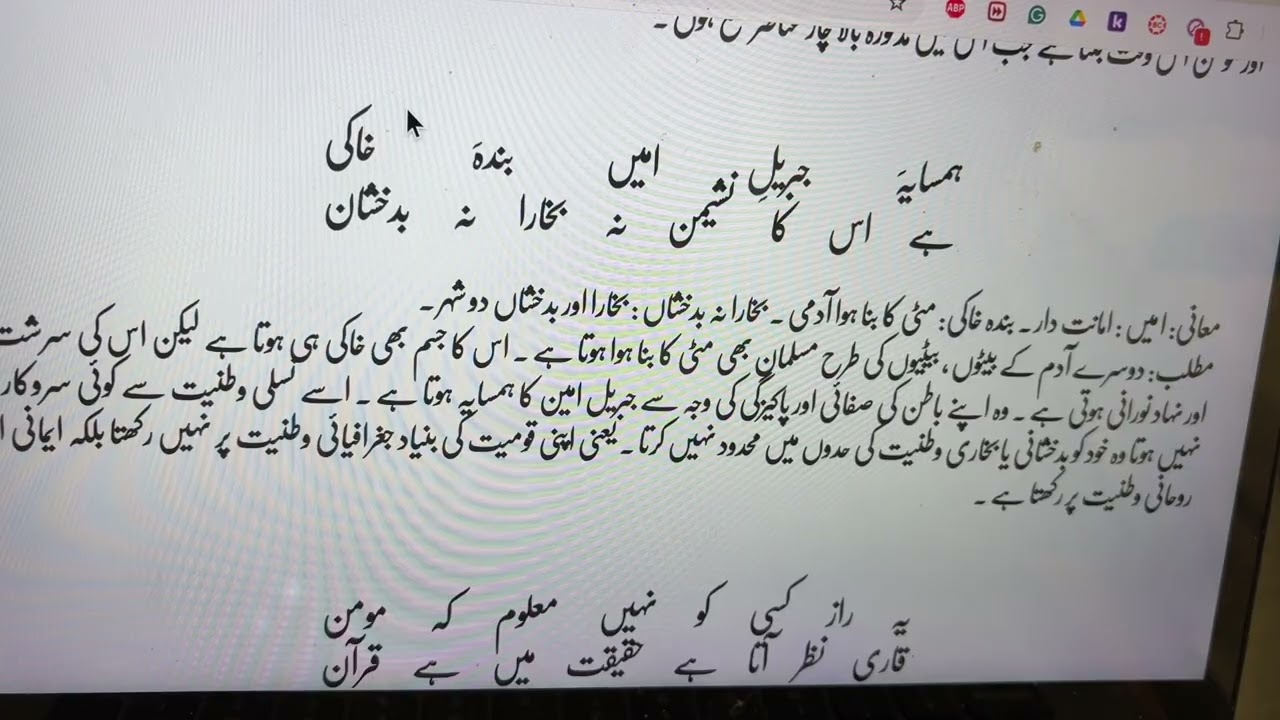 ABP
اور مومن اس وقت بنتا ہے جب اس میں مذکورہ بالا چار عناصر جمع ہوں ۔
ہمسایہَ جبریلِ امیں بندہَ خاکی
ہے اس کا نشیمن نہ بخارا نہ بدخشان
معانی: امیں : امانت دار ۔ بندہ خاکی: مٹی کا بنا ہوا آدمی ۔ بخارا نہ بدخشاں : بخارا اور بدخشاں دو شہر ۔
مطلب: دوسرے آدم کے بیٹوں ، بیٹیوں کی طرح مسلمان بھی مٹی کا بنا ہوا ہوتا ہے ۔ اس کا جسم بھی خاکی ہی ہوتا ہے لیکن اس کی سرشت
اور نہاد نورانی ہوتی ہے ۔ وہ اپنے باطن کی صفائی اور پاکیزگی کی وجہ سے جبریل امین کا ہمسایہ ہوتا ہے ۔ اسے نسلی وطنیت سے کوئی سروکار
نہیں ہوتا وہ خود کو بدخشانی یا بخاری وطنیت کی حدوں میں محدود نہیں کرتا ۔ یعنی اپنی قومیت کی بنیاد جغرافیائی وطنیت پر نہیں رکھتا بلکہ ایمانی
روحانی وطنیت پر رکھتا ہے ۔
یہ راز کسی کو نہیں معلوم کہ مومن
قاری نظر آتا ہے حقیقت میں ہے قرآن